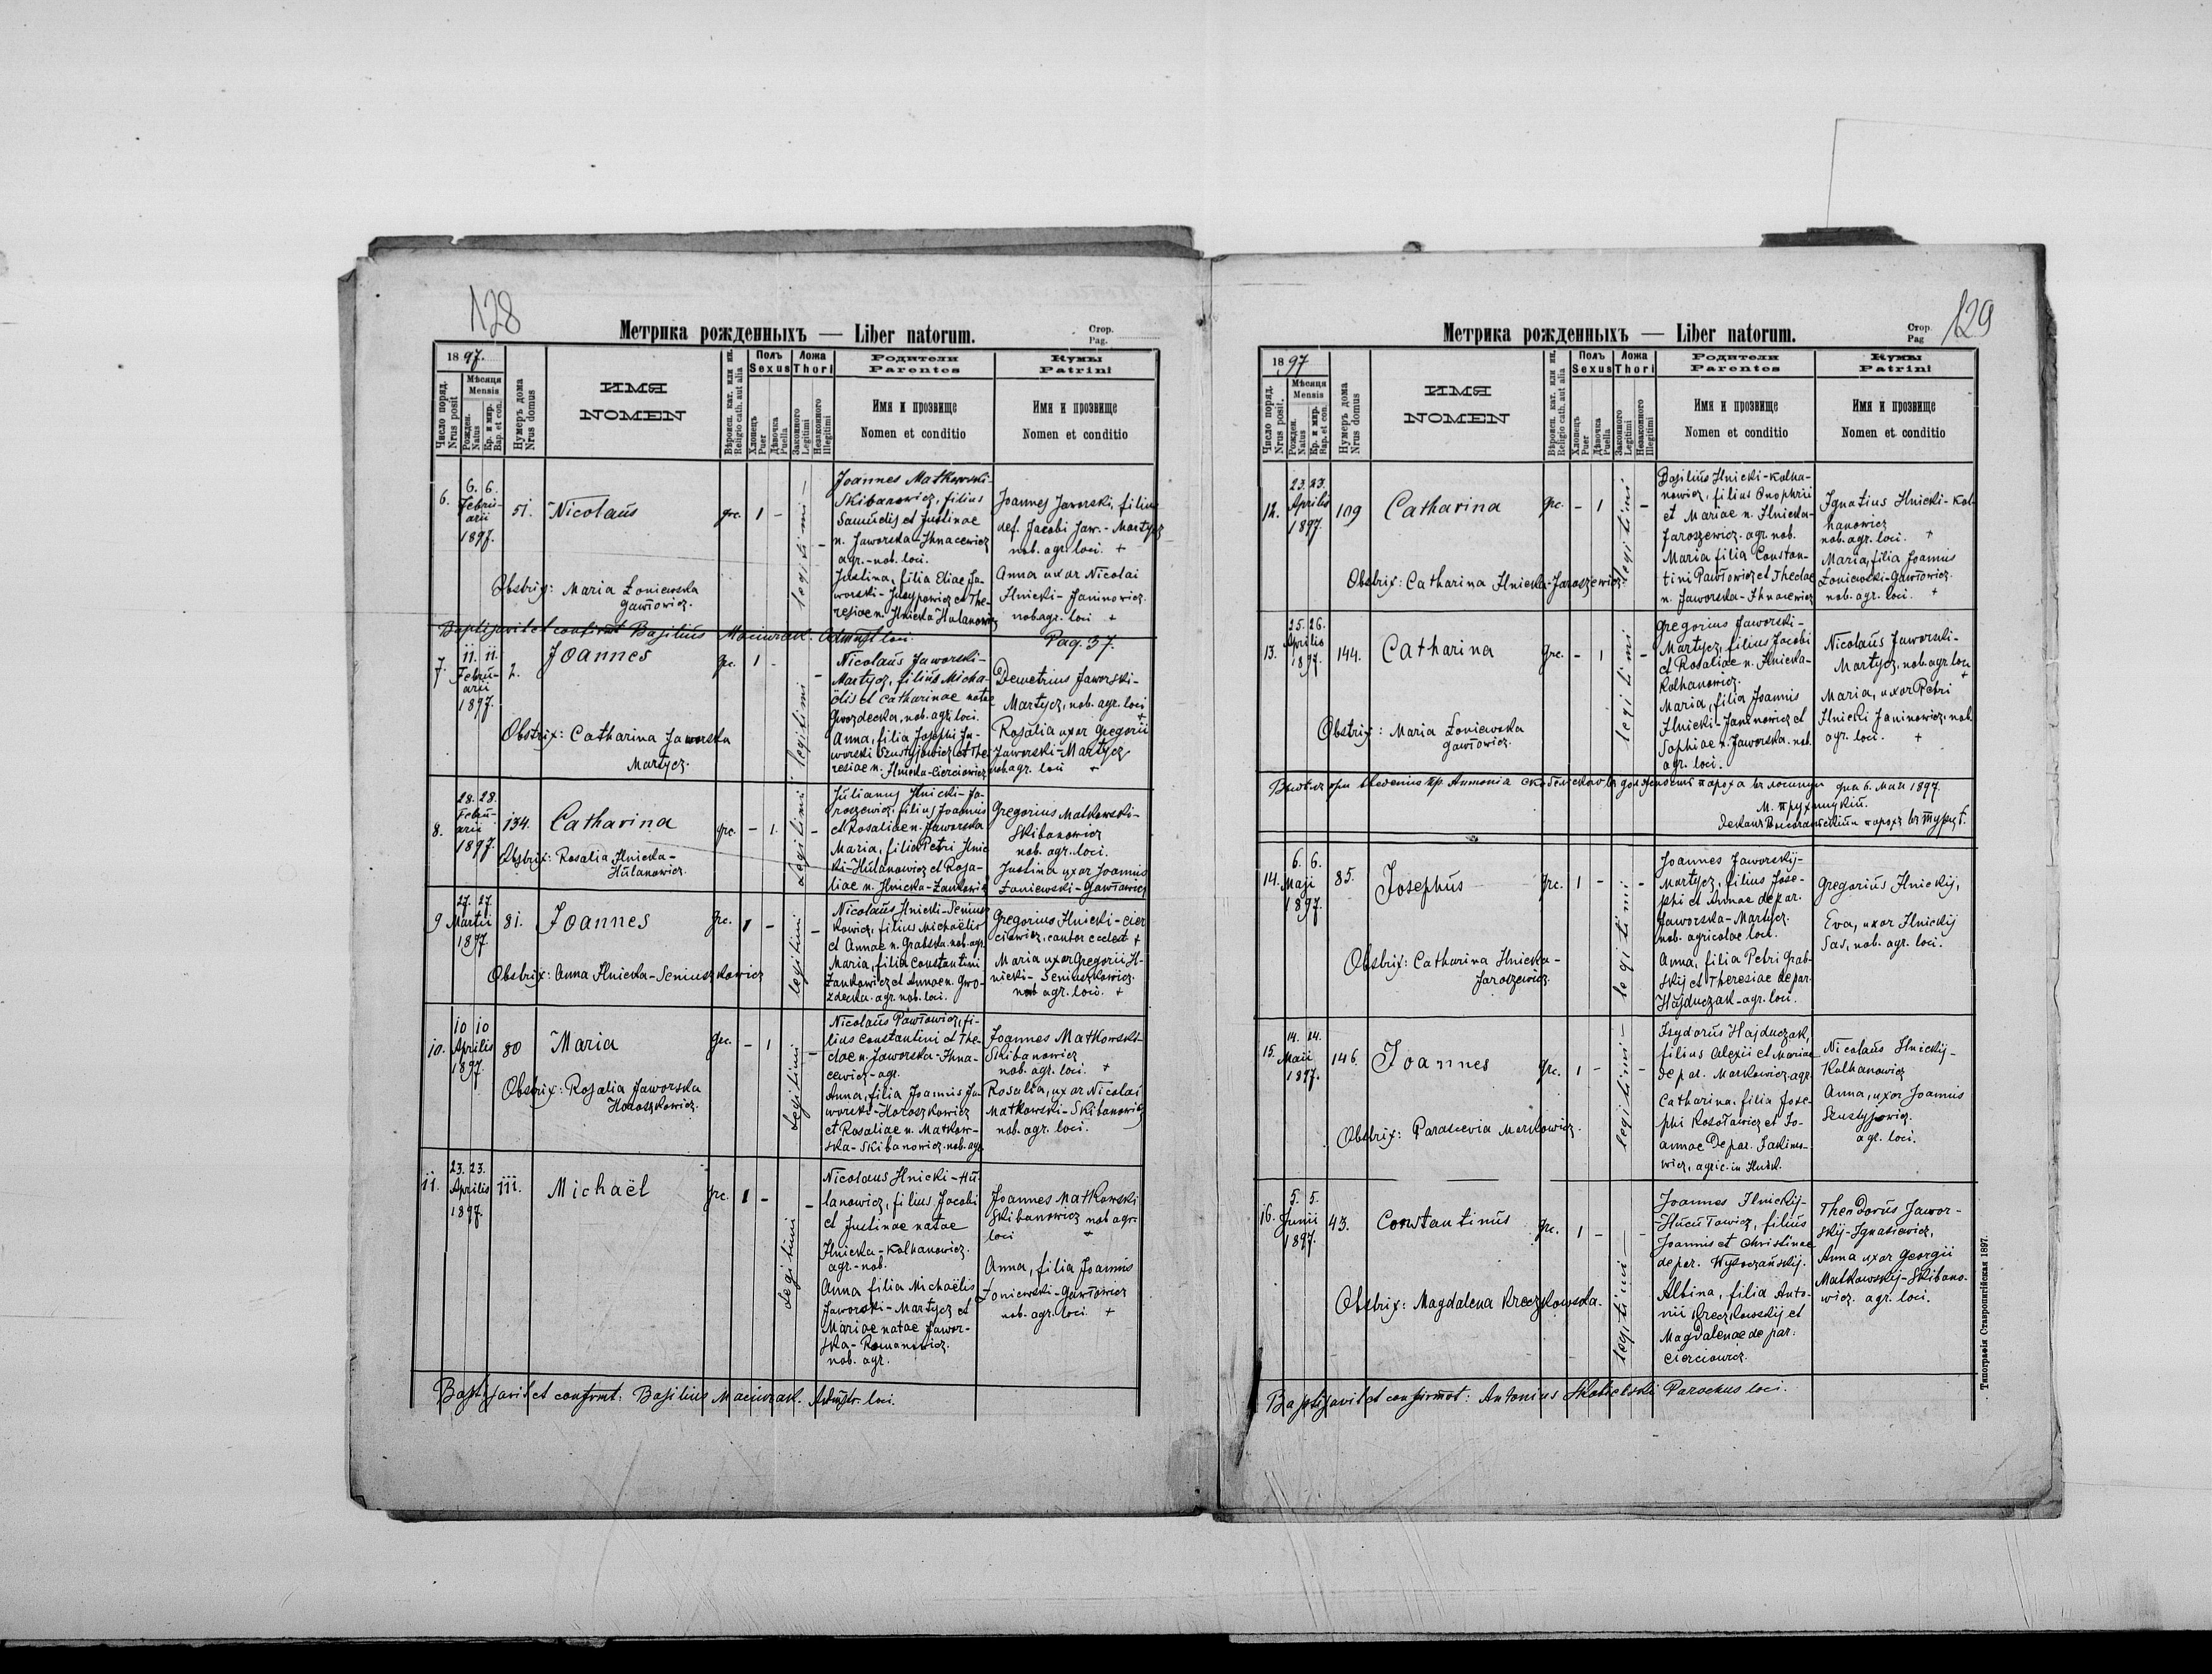 128
Метрика рожденныхъ — Liber natorum.
Стор.
Pag.
1897.
Число поряд.
Nrus posit
Мѣсяця
Mensis
Рожден.
Natus
Кр. и мир.
Bap. et con.
Нумеръ дома
Nrus domus
ИМЯ
NOMEN
Вѣроисп. кат. или ин.
Religio cath. aut alia
Полъ
Sexus
Хлопецъ
Puer
Дѣвочка
Puella
Ложа
Thori
Законного
Legitimi
Незаконного
Illegitimi
Родители
Parentes
Имя и прозвище
Nomen et conditio
Кумы
Patrini
Имя и прозвище
Nomen et conditio
6.
6. 6.
Februarii
1897.
51.
Nicolaus
grc.
1 -
legitimi -
Joannes Matkowski-
Skibanowicz, filius
Samuelis et Justinae
n. Jaworska-Ihnacewicz
agr.-nob. loci.
Justina, filia Eliae Ja-
worski-Jusypowicz et The-
resiae n. Ilnicka Hulanowicz
Joannes Jaworski, filius
def. Jacobi Jaw.- Martycz
nob. agr. loci. +
Anna uxor Nicolai
Ilnicki-Janinowicz.
nob. agr. loci +
Obstrix: Maria Łoniewska
Gawłowicz.
Baptisavit et confirmt Basilius Maciurzak. Admnst loci.
Pag. 37.
7.
11. 11.
Febru-
arii
1897.
2.
Joannes
grc.
1 -
legitimi
Nicolaus Jaworski-
Martycz, filius Micha-
ëlis et Catharinae natae
Gwozdecka, nob. agr. loci.
Anna, filia Josephi Ja-
worski Szustyjowicz et The-
resiae n. Ilnicka-Cierciowicz
Demetrius Jaworski-
Martycz, nob. agr. loci
+
Rosalia uxor Gregorii
Jaworski-Martycz
nob. agr. loci +
Obstrix: Catharina Jaworska
Martycz.
8.
28. 28.
Febru-
arii
1897.
134.
Catharina
grc.
- 1.
legitimi
Julianus Ilnicki-Ja-
roszewicz, filius Joannis
et Rosaliae n. Jaworska
Maria, filia Petri Ilnic
ki-Hulanowicz et Rosa-
liae n. Ilnicka-Zankowicz
Gregorius Matkowski-
Skibanowicz
nob. agr. loci.
Justina uxor Joannis
Łoniewski-Gawłowicz
Obstrix: Rosalia Ilnicka-
Hulanowicz.
9
27. 27.
Martii
1897.
81.
Joannes
grc.
1 -
legitimi
Nicolaus Ilnicki-Seniusz
kowicz, filius Michaëlis
et Annae n. Grabska nob. agr.
Maria, filia Constantini
Zankowicz et Annae n. Gwo-
zdecka. agr. nob. loci.
Gregorius Ilnicki-Cier
ciowicz, cantor eccles. +
Maria uxor Gregorii Il-
nicki-Seniuszkowicz.
nob agr. loci. +
Obstrix: Anna Ilnicka-Seniuszkowicz
10.
10 10
Aprilis
1897.
80
Maria
grc.
- 1
legitimi
Nicolaus Pawłowicz, fi-
lius Constantini et The-
clae n. Jaworska-Ihna-
cewicz-agr.
Anna, filia Joannis Ja-
worski-Horoszkowicz
et Rosaliae n. Matkow-
ska-Skibanowicz. nob. agr.
Joannes Matkowski-
Skibanowicz
nob. agr. loci. +
Rosalia, uxor Nicolai
Matkowski-Skibanowicz
nob. agr. loci.
Obstrix: Rosalia Jaworska
Horoszkowicz.
11.
23. 23.
Aprilis
1897.
111.
Michaël
grc.
1 -
legitimi
Nicolaus Ilnicki-Hu-
lanowicz, filius Jacobi
et Justinae natae
Ilnicka-Kolhanowicz.
agr.-nob.
Anna filia Michaëlis
Jaworski-Martycz et
Mariae natae Jawor-
ska-Romanowicz.
nob. agr.
Joannes Matkowski
Skibanowicz nob agr.
loci +
Anna, filia Joannis
Łoniewski-Gawłowicz
nob. agr. loci. +
Baptisavit et confrmt: Basilius Maciurzak. Admnstr. loci.
129
Метрика рожденныхъ — Liber natorum.
Стор.
Pag
1897
Число поряд.
Nrus posit.
Мѣсяця
Mensis
Рожден.
Natus
Кр. и мир.
Bap. et con.
Нумеръ дома
Nrus domus
ИМЯ
NOMEN
Вѣроисп. кат. или ин.
Religio cath. aut alia
Полъ
Sexus
Хлопецъ
Puer
Дѣвочка
Puella
Ложа
Thori
Законного
Legitimi
Незаконного
Illegitimi
Родители
Parentes
Имя и прозвище
Nomen et conditio
Кумы
Patrini
Имя и прозвище
Nomen et conditio
12.
23. 23.
Aprilis
1897.
109
Catharina
grc.
- 1
legitimi
Basilius Ilnicki-Kolha-
nowicz, filius Onophrii
et Mariae n. Ilnicka-
Jaroszewicz. agr. nob.
Maria filia Constan-
tini Pawłowicz et Theclae
n. Jaworska-Ihnacewicz
Ignatius Ilnicki-Kol
hanowicz
nob. agr. loci. +
Maria, filia Joannis
Łoniewski-Gawłowicz.
nob. agr. loci. +
Obstrix: Catharina Ilnicka-Jaroszewicz.
13.
25. 26.
Aprilis
1897.
144.
Catharina
grc.
- 1
legitimi
Gregorius Jaworski-
Martycz, filius Jacobi
et Rosaliae n. Ilnicka-
Kolhanowicz.
Maria, filia Joannis
Ilnicki-Janinowicz et
Sophiae n. Jaworska. nob.
agr. loci.
Nicolaus Jaworski-
Martycz, nob. agr. loci
+
Maria, uxor Petri
Ilnicki Janinowicz, nob.
agr. loci. +
Obstrix: Maria Łoniewska
Gawłowicz.
дня 6. Мая 1897.
14.
6. 6.
Maji
1897.
85.
Josephus
grc.
1 -
legitimi
Joannes Jaworskij-
Martycz, filius Jose-
phi et Annae de par.
Jaworska-Martycz.
nob. agricolae loci.
Anna, filia Petri Grab-
skij et Theresiae de par.
Hajduczak-agr. loci.
Gregorius Ilnickij,
Eva, uxor Ilnickij
Sas, nob. agr. loci.
Obstrix: Catharina Ilnicka-
Jaroszewicz.
15.
14. 14.
Maii
1897.
146.
Joannes
grc.
1 -
legitimi -
Isydorus Hajduczak,
filius Alexii et Mariae
de par. Markowicz-agr.
Catharina, filia Jose-
phi Kosoławicz et Jo-
annae de par. Jakimo-
wicz, agric. in Ilnick.
Nicolaus Ilnickij-
Kolhanowicz
Anna, uxor Joannis
Szustyjowicz.
agr. loci.
Obstrix: Parascevia Markowicz.
16.
5. 5.
Junii
1897.
43.
Constantinus
grc.
1 -
legitimi -
Joannes Ilnickij-
Hucułowicz, filius
Joannis et Christinae
de par. Wysoczańskij.
Albina, filia Anto-
nii Kreczkowskij et
Magdalenae de par.
Cierciowicz.
Theodorus Jawor-
skij-Ignasiewicz,
Anna uxor Georgii
Matkowskij-Skibano-
wicz. agr. loci.
Obstrix: Magdalena Kreczkowska.
Baptisavit et confirmot: Antonius Skobelski Parochus loci.
Типографія Ставропигійская 1897.